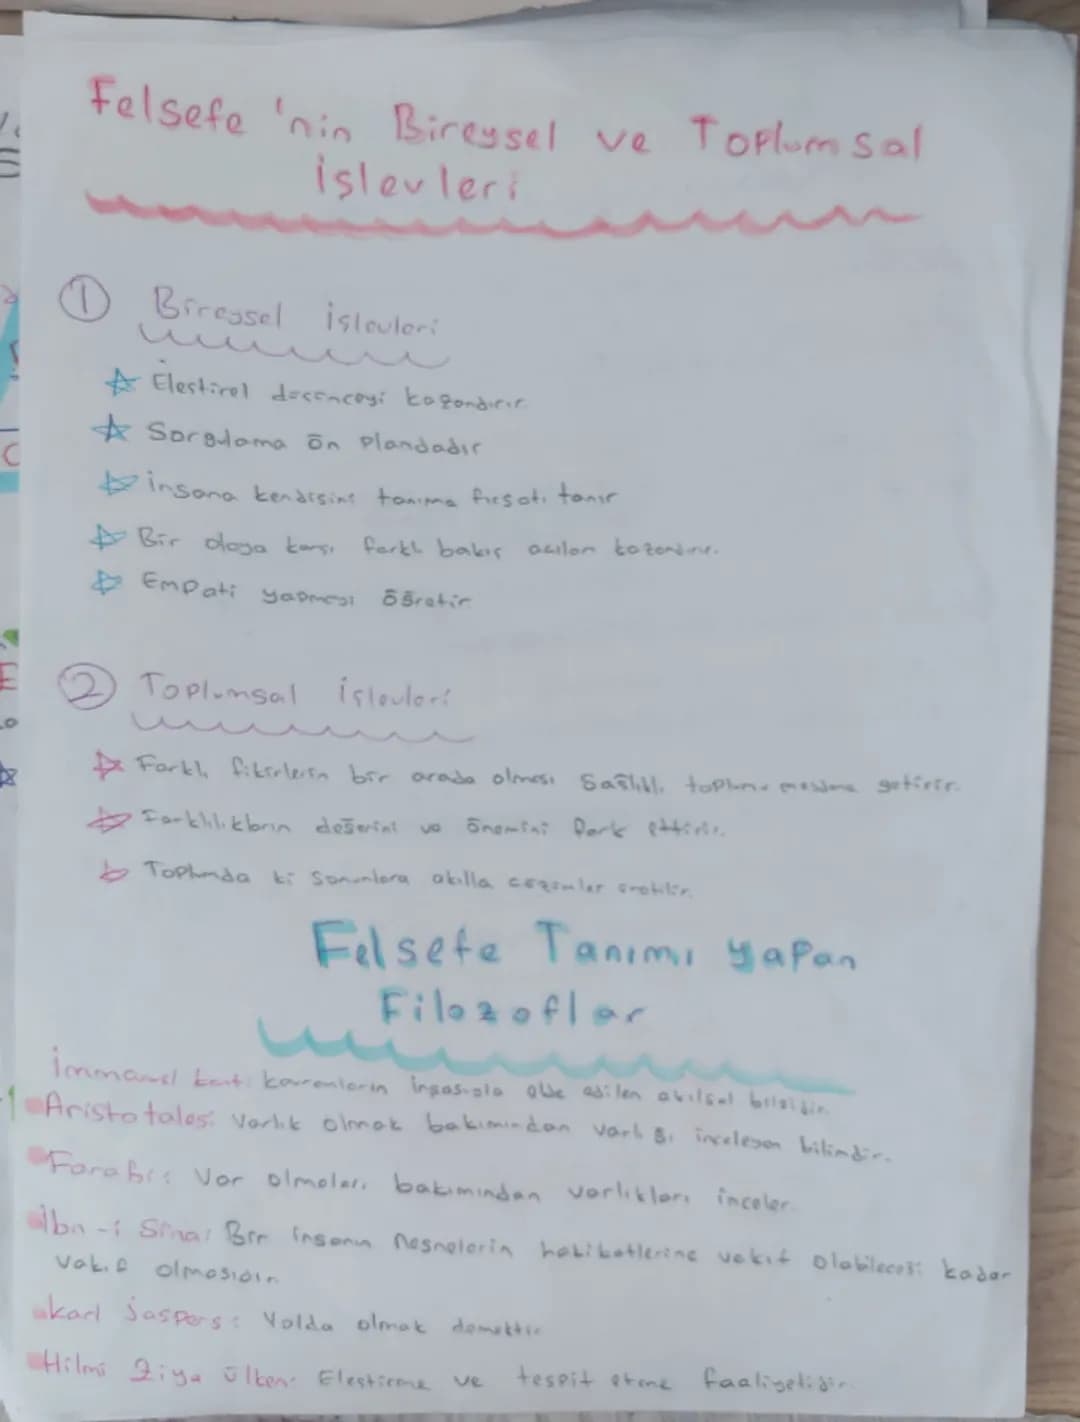 Felsefe 'nin Bireysel ve Toplumsal
işlevleri
1 Bireysel işlevleri
Eleştirel düşünceyi kazandırır.
Sorgulama ön plandadır
insana kendisini tanıma fırsatı tanır
Bir olaya karşı farklı bakış açıları kazandırır.
Empati yapmayı öğretir
2 Toplumsal işlevleri
Farklı fikirlerin bir arada olması sağlıklı toplumu meydana getirir.
Farklılıkların değerini ve önemini fark ettirir.
Toplumda ki sorunlara akılla çözümler üretilir.
Felsefe Tanımı yapan
Filozoflar
immanuel kant: kavramların inşasıyla elde edilen akılsal bilgidir.
Aristotales: Varlık olmak bakımından varlığı inceleyen bilimdir.
Farabi: Var olmaları bakımından varlıkları inceler.
ibn-i Sina: Bir insanın nesnelerin hakikatlerine vakıf olabileceği kadar
vakıf olmasıdır
karl jaspers: Yolda olmak demektir
Hilmi Ziya ülken: Eleştirme ve tespit etme faaliyetidir.